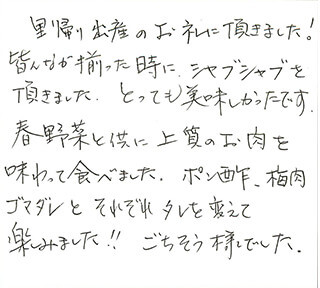 里帰り出産のお礼に頂きました!
皆んなが揃った時に、シャブシャブを
頂きました。とっても美味しかったです。
春野菜と供に上質のお肉を
味わって食べました。ポン酢、梅肉
ゴマダレとそれぞれタレを変えて
楽しみました!! ごちそう様でした。